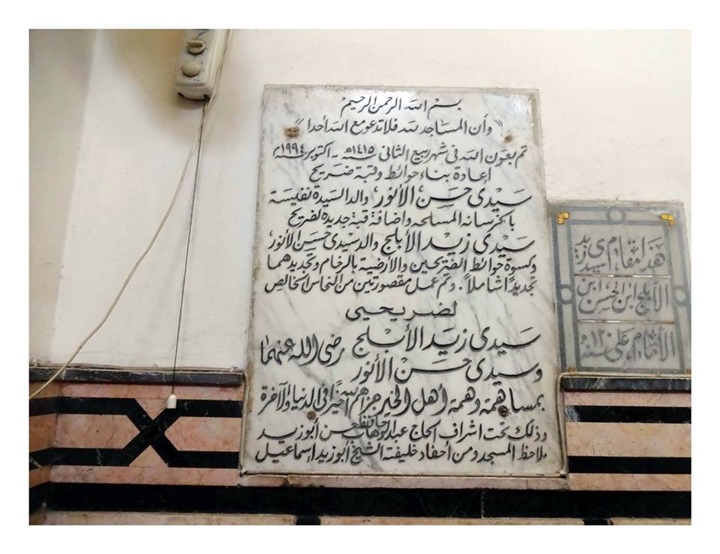 بسم الله الرحمن الرحيم
"وأن المساجد لله فلا تدعو مع الله أحدا"
تم بعون الله في شهر ربيع الثاني ١٤١٥هـ - أكتوبر ١٩٩٤م
إعادة بناء حوائط وقبة ضريح
سيدى حسن الأنور، والد السيدة نفيسة
بالخرسانه المسلحه واضافة قبة جديده لضريح
سيدى زيد الأبلج والد سيدى حسن الأنور
وكسوة حوائط الضريحين والأرضية بالرخام وتجديدهما
تجديدًا شاملاً. وتم عمل مقصورتين من النحاس الخالص
لضريحيى
سيدى زيد الأبلج
وسيدى حسن الأنور رضى الله عنهما
بمساهمة وهمة أهل الخير جزاهم الله خيرًا فى الدنيا والآخرة
وذلك تحت اشراف الحاج عبد الوهاب حسن أبو زيد
ملاحظ المسجد ومن أحفاد خليفته الشيخ أبو زيد إسماعيل
هذا مقام سيدى زيد
الأبلج ابن الحسن ابن
الأمام على سنة